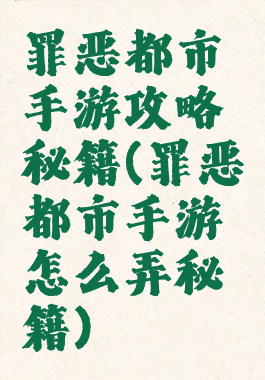 罪恶都市
手游攻略
秘籍(罪恶
都市手游
怎么弄秘
籍)